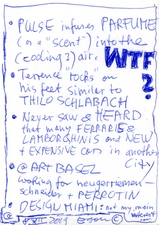 • PULSE infuses PARFUME
(or a "scent") into the
(cooling?) air.
WTF
?
• Terrence rocks on
his feet similar to
THILO SCHLABACH
• Never saw & HEARD
that many FERRARIS &
LAMBORGHINIS and NEW
+ EXPENSIVE cars in another
city
• @ ART BASEL
looking for neugerriemen-
schneider + PERROTIN
• DESIGN MIAMI: not my main
2009